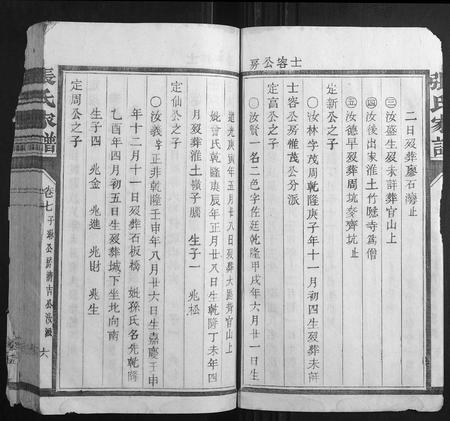 張氏家譜
士容公房
二日歿葬廖石灣止
㊂汝盛生歿未詳葬官山上
㊃汝後出家淮土竹隱寺爲僧
㊄汝德早歿葬周坑麥齊坑止
定新公之子
〇汝林字茂周乾隆庚子年十一月初四生歿葬未詳
士容公房惟茂公分派
定富公之子
〇汝賢一名二色字佐廷乾隆甲戌年六月廿一日生
道光庚寅年五月廿八日歿葬大路背官山上
妣曾氏乾隆庚辰年正月廿八日生乾隆丁未年四
月歿葬淮土嶺子腦 生子一 兆松
定仙公之子
〇汝義字正非乾隆壬申年八月廿六日生嘉慶壬申
年十二月十一日歿葬石板橋 妣孫氏名先乾隆
乙酉年四月初五日生歿葬城下坐北向南
生子四 兆金 兆進 兆財 兆生
定周公之子
張氏家譜
卷七
六